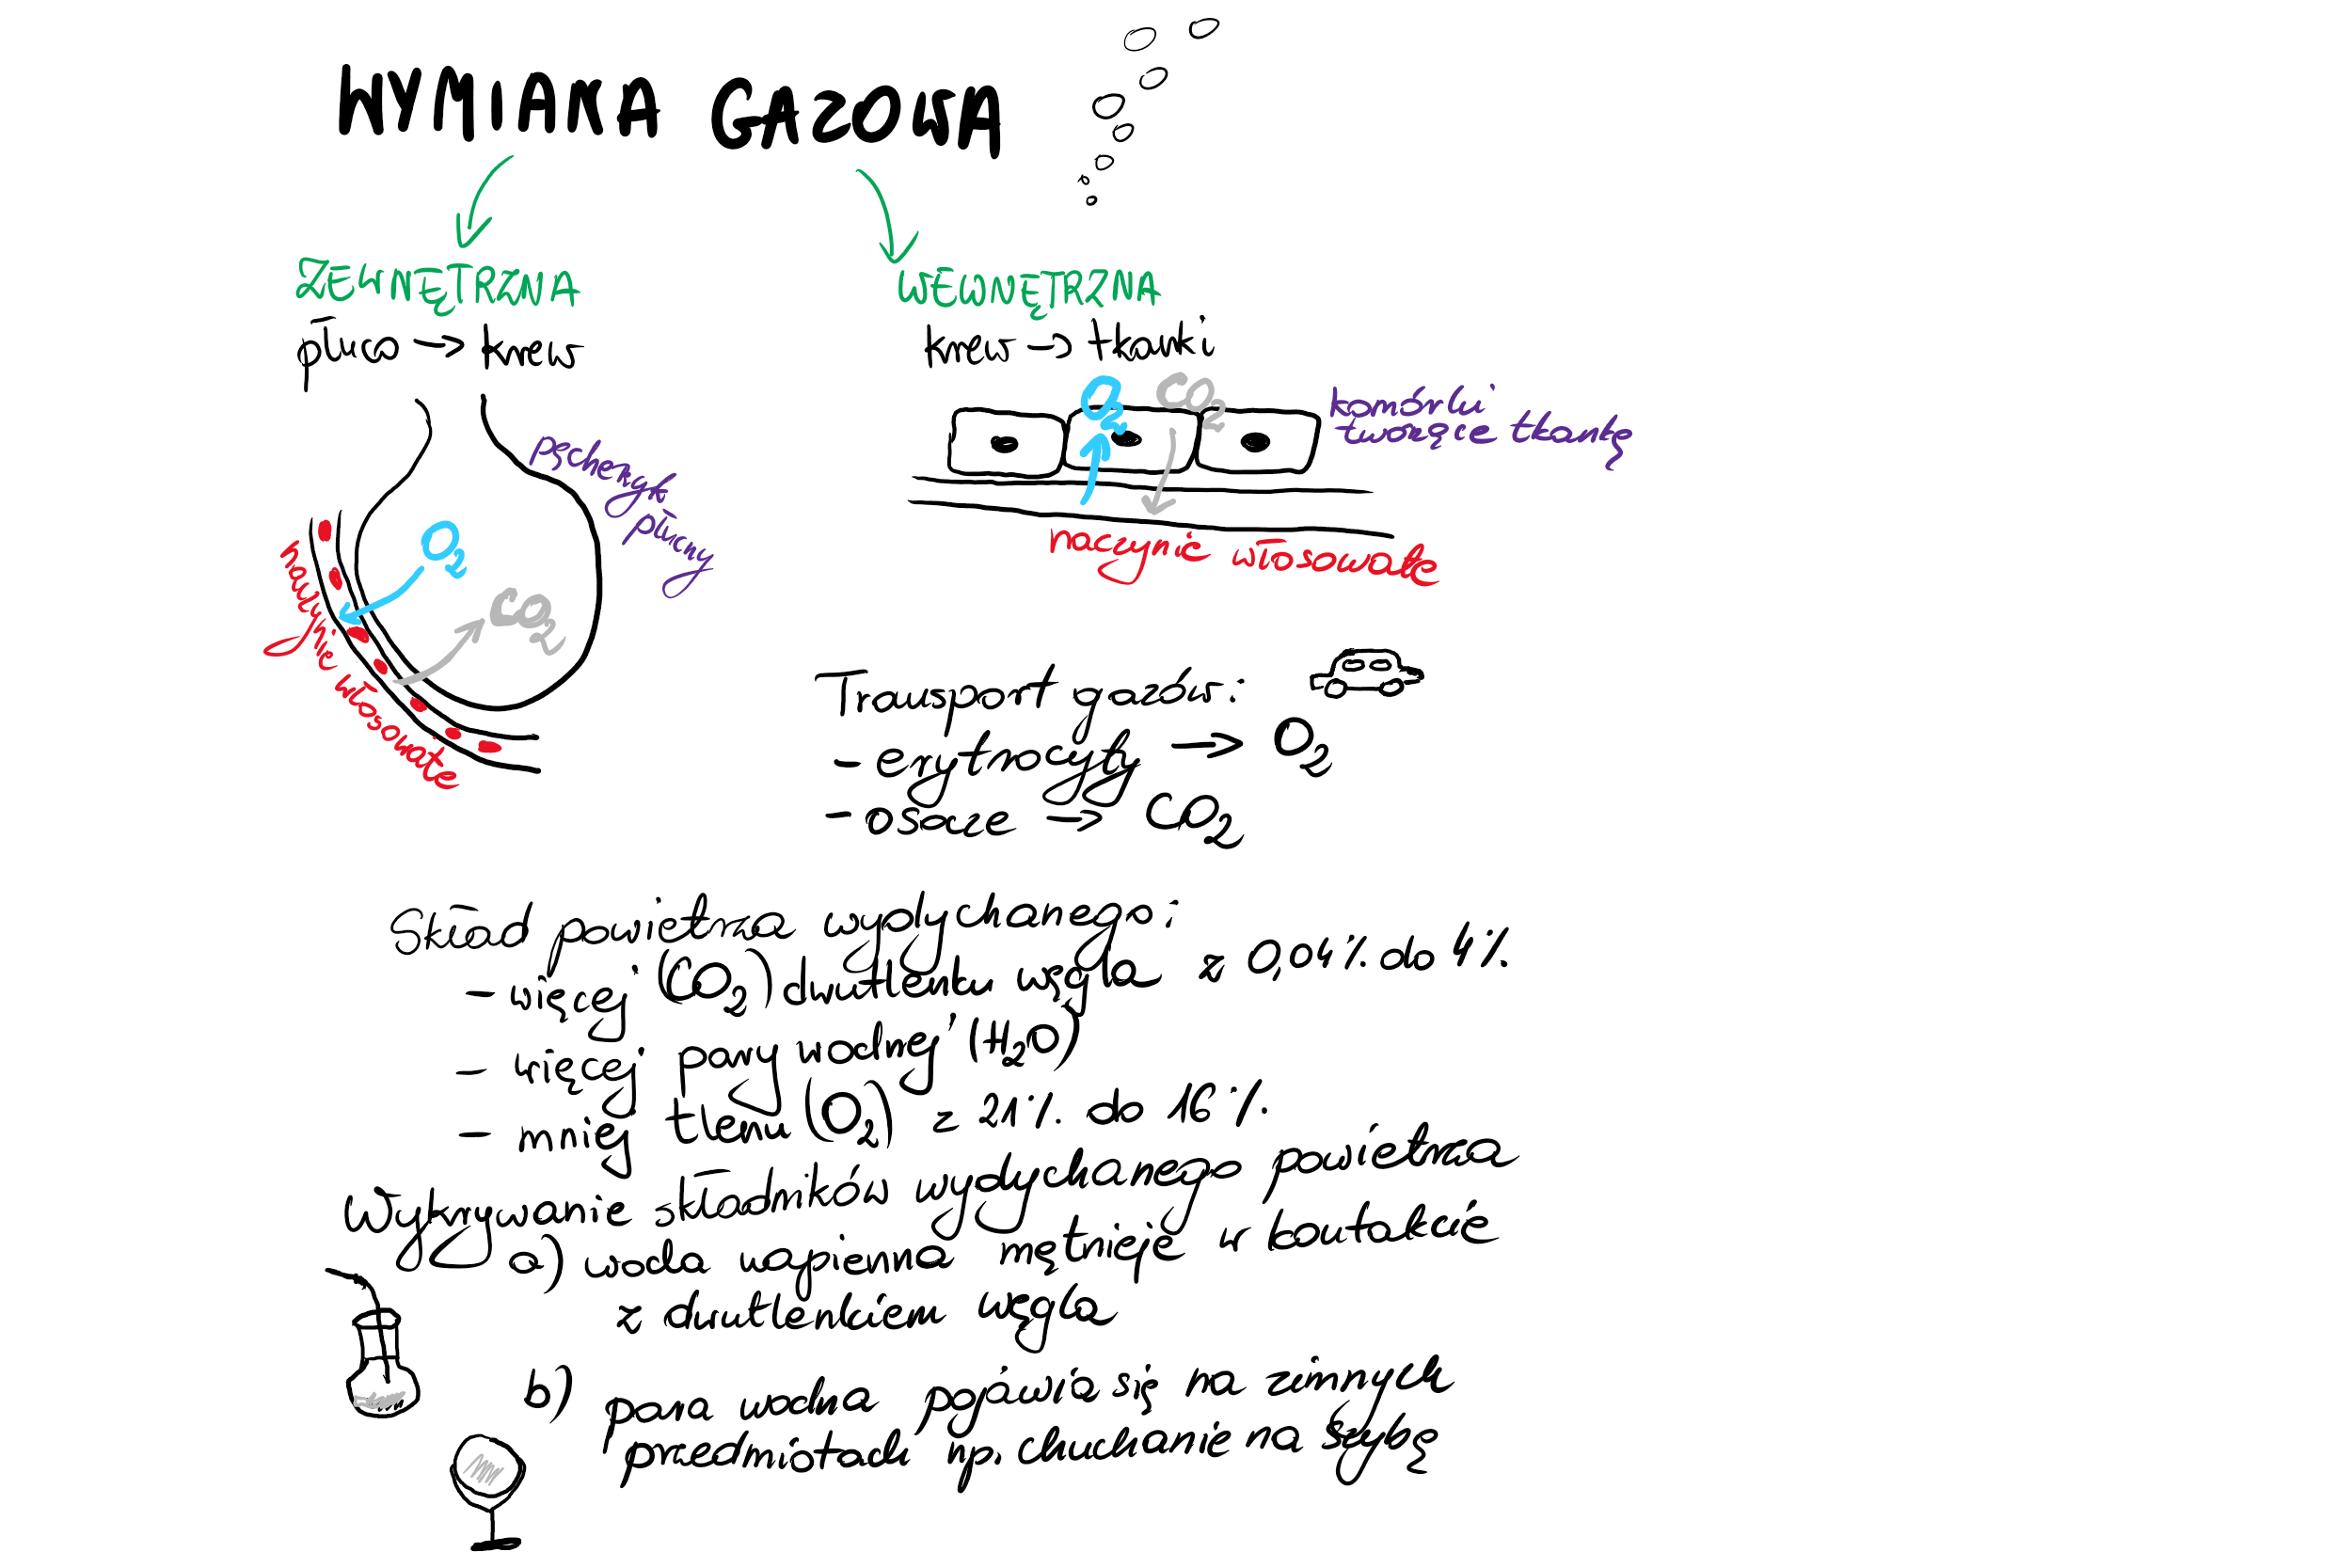 WYMIANA GAZOWA
ZEWNĘTRZNA
płuco → krew
pęcherzyk
płucny
O2
CO2
naczynie włosowate
WEWNĘTRZNA
krew → tkanki
O2 CO2
komórki
tworzące tkankę
naczynie włosowate
Transport gazów:
- erytrocyty → O2
- osocze → CO2
Skład powietrza wydychanego:
- więcej (CO2) dwutlenku węgla z 0,04% do 4%
- więcej pary wodnej (H2O)
- mniej tlenu (O2) z 21% do 16%
Wykrywanie składników wydychanego powietrza
a) woda wapienna mętnieje w kontakcie
z dwutlenkiem węgla
b) para wodna pojawia się na zimnych
przedmiotach np. chuchanie na szybę